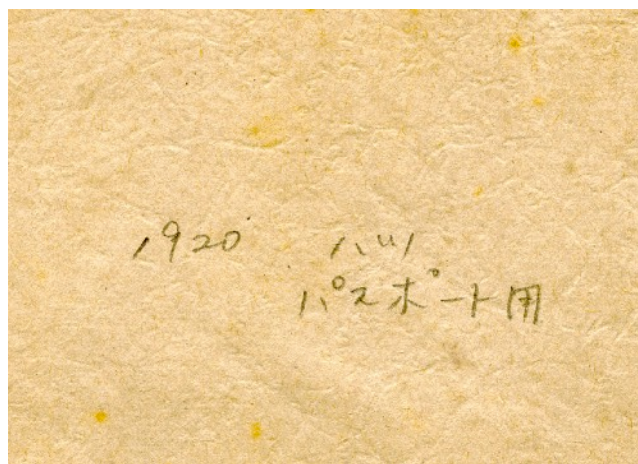 1920 ハツ
パスポート用